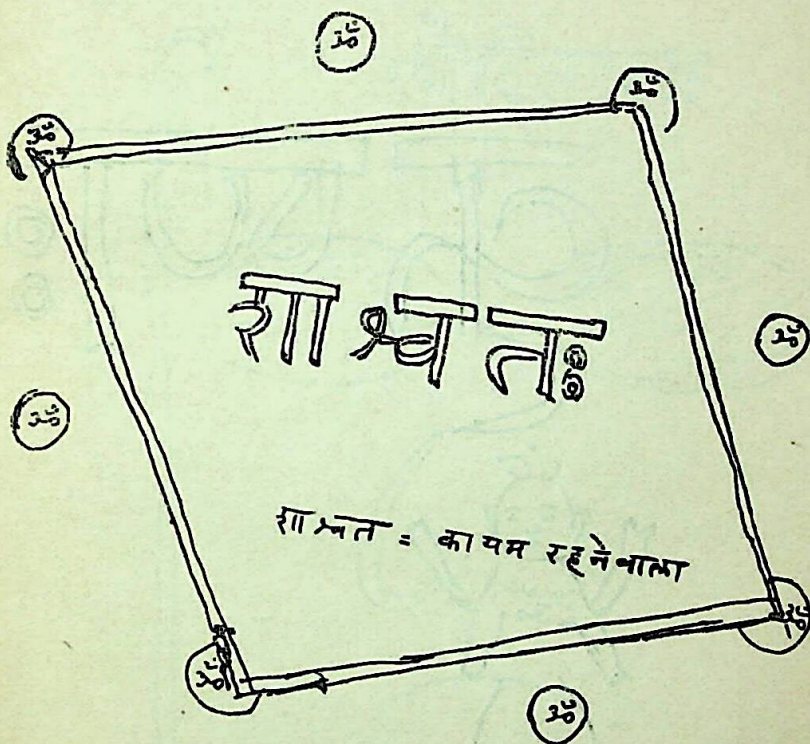 ॐ
ॐ
ॐ
शाश्वतः
ॐ
ॐ
शाश्वत = कायम रहनेवाला
ॐ
ॐ
ॐ